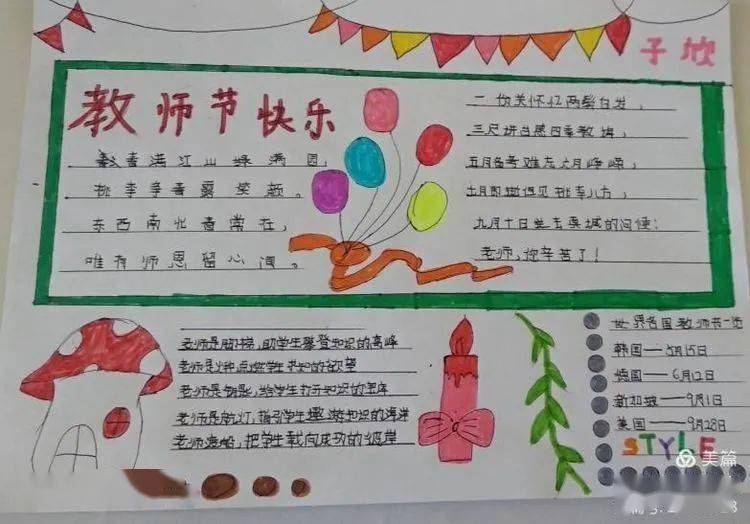 子欣
教师节快乐
春满江山绿满园，
桃李争春露笑颜。
东西南北春常在，
唯有师恩留心间。
一份关怀忆两鬓白发，
三尺讲台感四季教诲，
五月备考难忘六月峥嵘，
七月甜得见桃李八方，
九月十日送去真诚的问候：
老师，你辛苦了！
老师是脚梯，助学生攀登知识的高峰
老师是火种 点燃学生求知的欲望
老师是钥匙，给学生打开知识的宝库
老师是航灯，指引学生遨游知识的海洋
老师渡船，把学生载向成功的彼岸
世界各国教师节一览
韩国——5月15日
德国——6月12日
新加坡——9月1日
美国——9月28日
STYLE
美篇